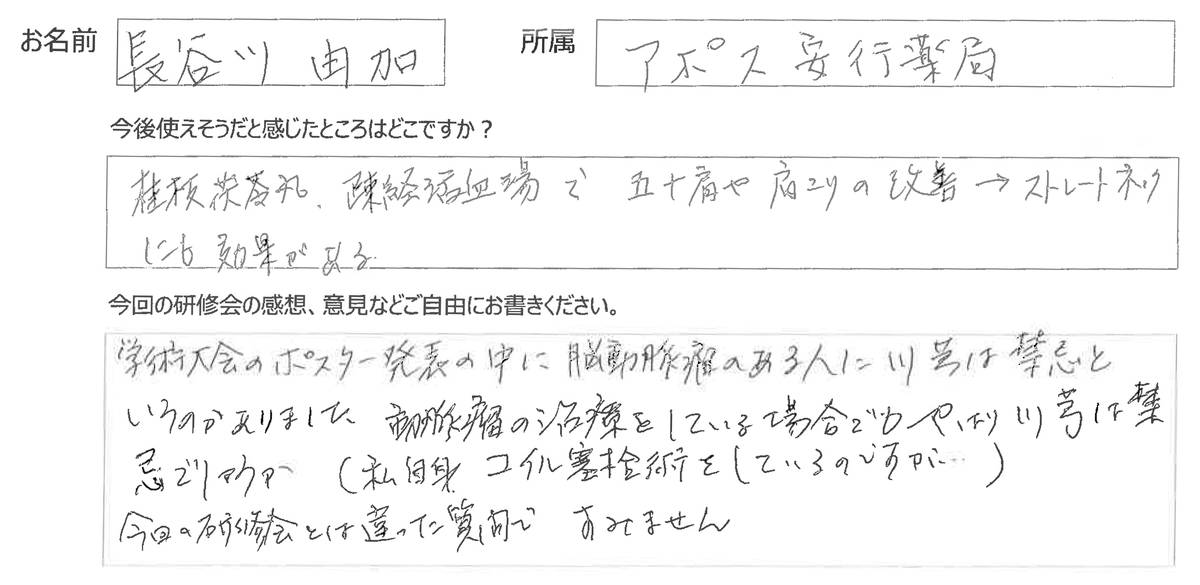 お名前 長谷川 由加 所属 アポス安行薬局
今後使えそうだと感じたところはどこですか?
桂枝茯苓丸、疎経活血湯で 五十肩や肩こりの改善→ストレートネック
にも効果がある
今回の研修会の感想、意見などご自由にお書きください。
学術大会のポスター発表の中に脳動脈瘤のある人に川芎は禁忌と
いうのがありました 動脈瘤の治療をしている場合でも やはり川芎は禁
忌でしょうか (私自身 コイル塞栓術をしているのですが…)
今回の研修会とは違った質問で すみません